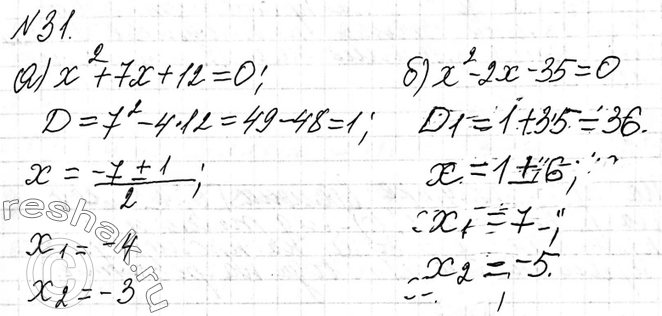 №31.
а) x² + 7x + 12 = 0;
D = 7² - 4·12 = 49 - 48 = 1;
x = (-7 ± 1)/2;
x₁ = -4
x₂ = -3
б) x² - 2x - 35 = 0
D₁ = 1 + 35 = 36.
x = 1 ± 6;
x₁ = 7;
x₂ = -5.
reshak.ru